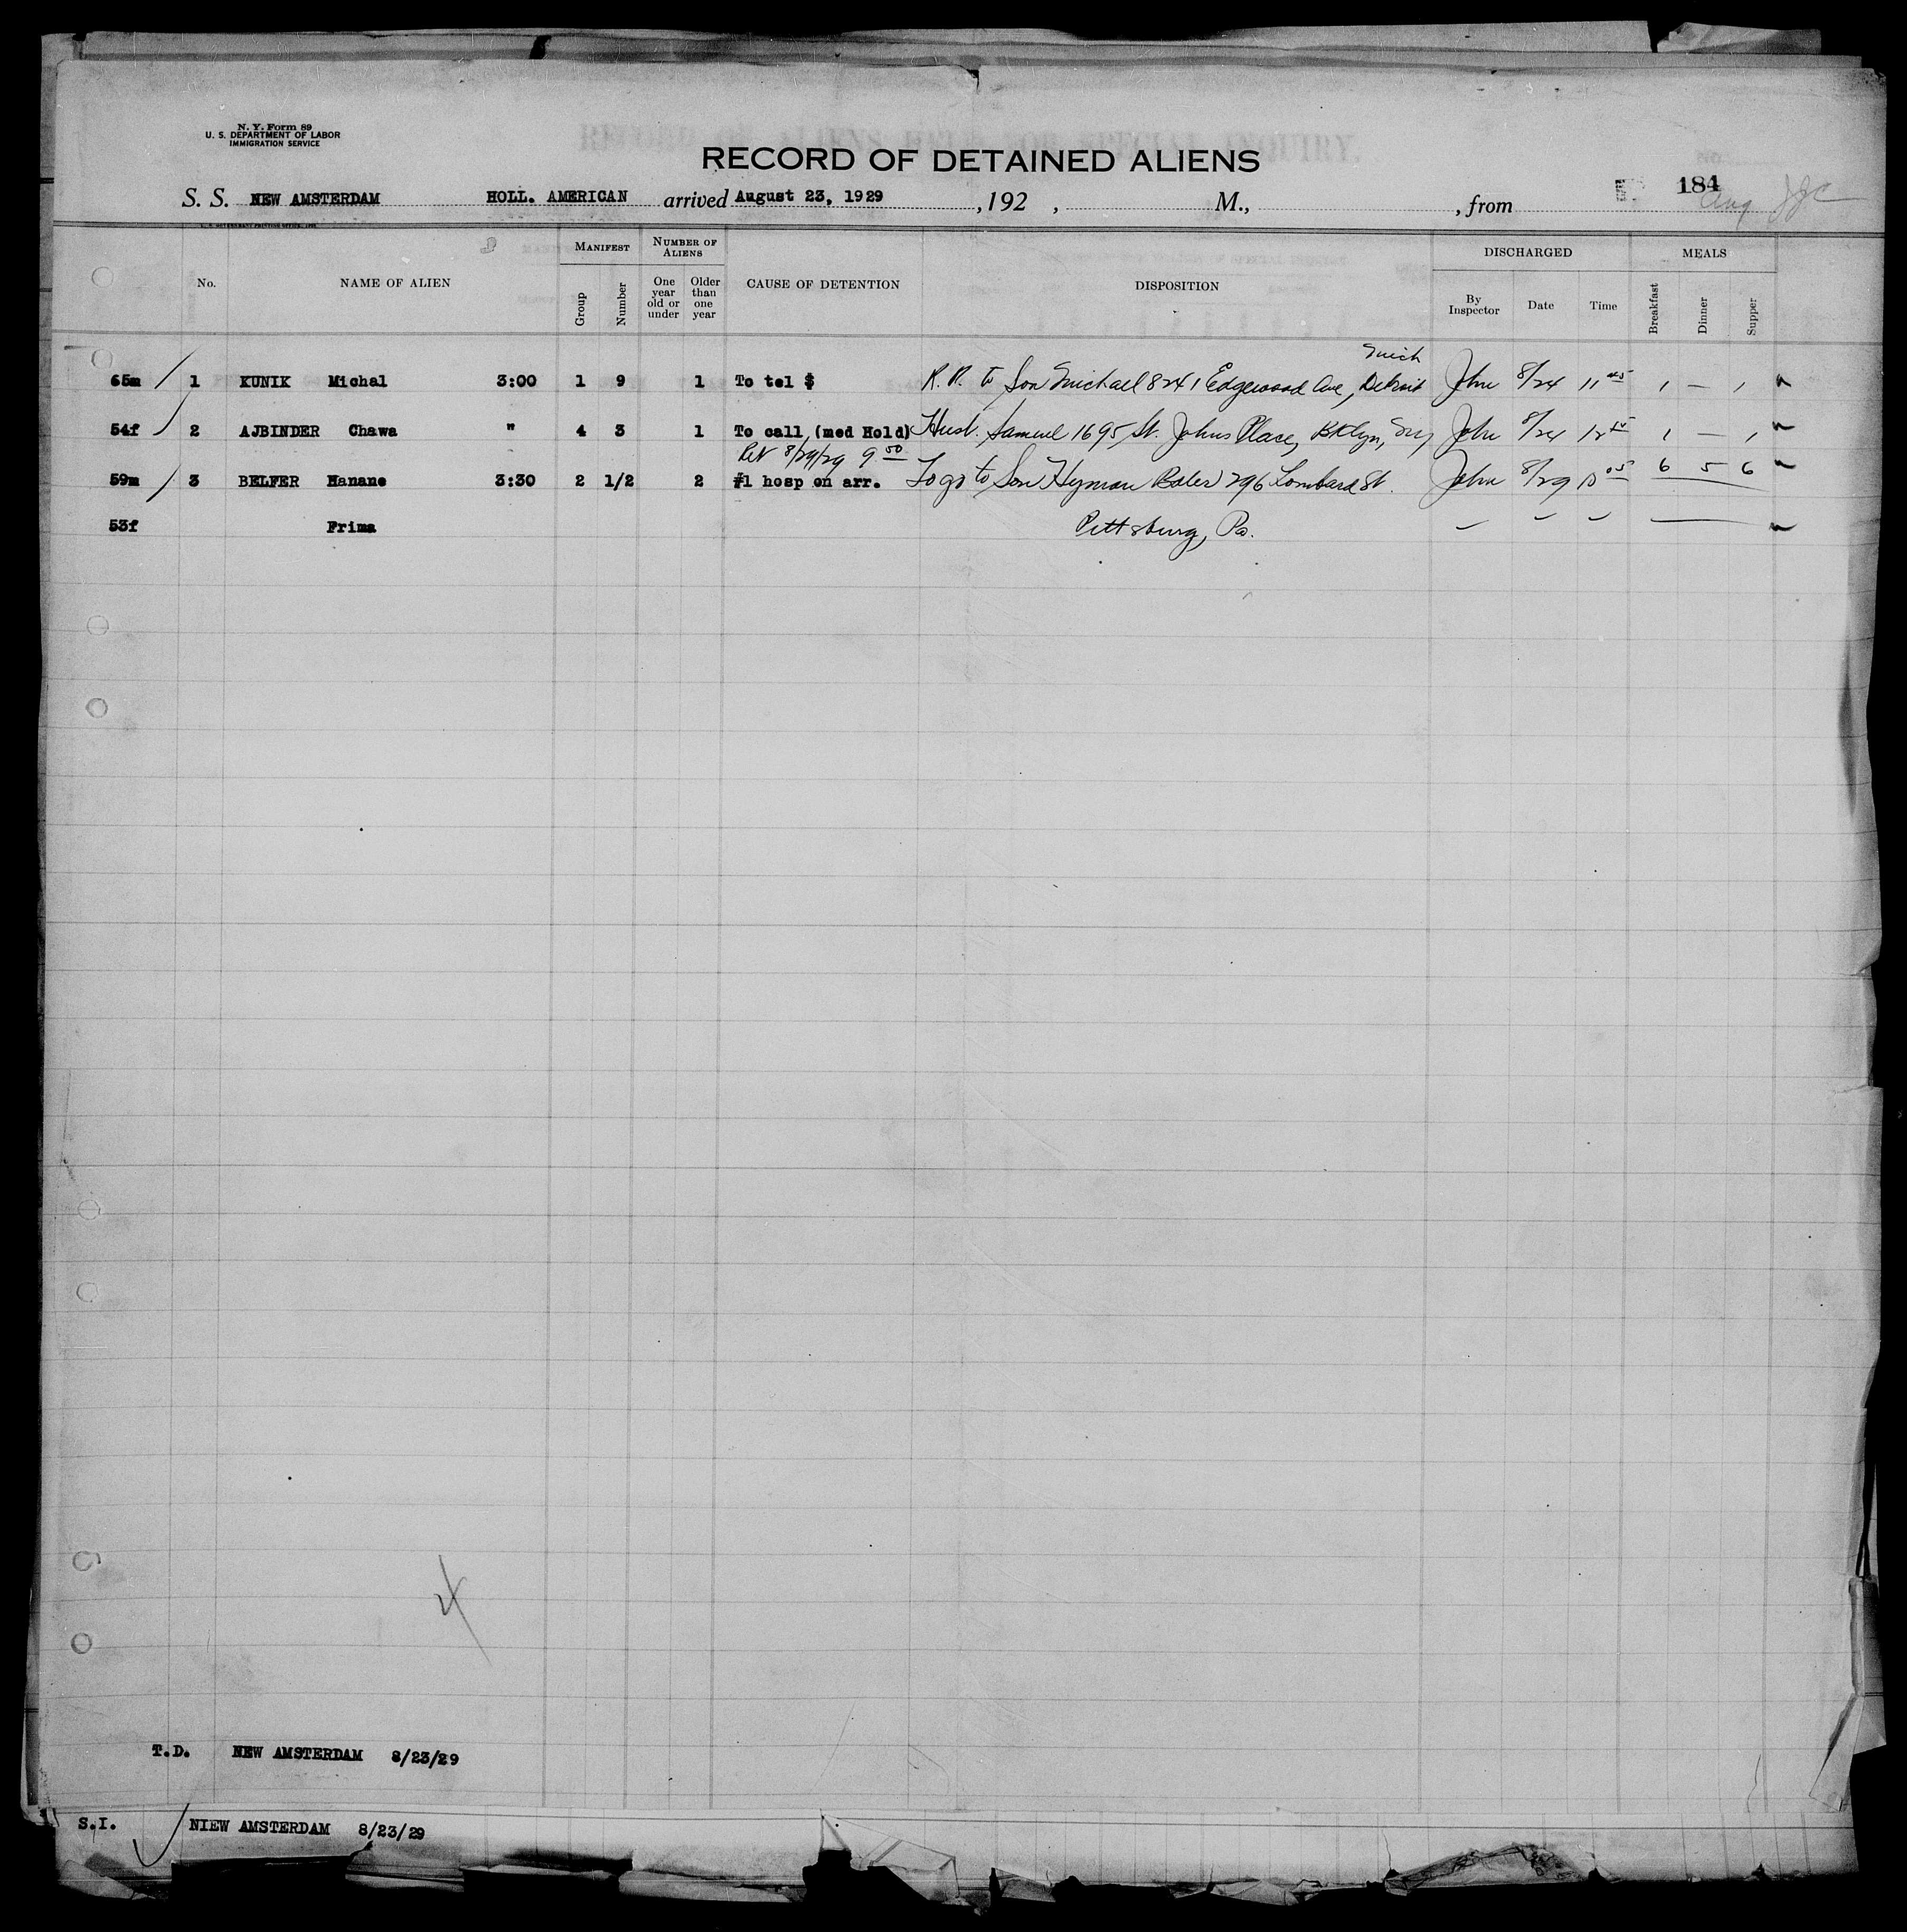 N. Y. Form 89
U. S. DEPARTMENT OF LABOR
IMMIGRATION SERVICE
RECORD OF ALIENS HELD FOR SPECIAL INQUIRY.
RECORD OF DETAINED ALIENS
184
S. S. NEW AMSTERDAM HOLL. AMERICAN arrived August 23, 1929 , 192 , M., , from
No. NAME OF ALIEN MANIFEST Group Number NUMBER OF ALIENS One year old or under Older than one year CAUSE OF DETENTION DISPOSITION DISCHARGED By Inspector Date Time MEALS Breakfast Dinner Supper
Mich
65m 1 KUNIK Michal 3:00 1 9 1 To tel $ R. R. to Son Michael 8241 Edgewood Ave, Detroit John 8/24 11 45 1 — 1
54f 2 AJBINDER Chawa " 4 3 1 To call (med Hold) Husb. Samuel 1695 St. Johns Place, Bklyn, NY John 8/24 1 — 1
Ret 8/29/29 9 50
59m 3 BELFER Hanane 3:30 2 1/2 2 #1 hosp on arr. To go to Son Hyman 296 Lombard St. John 8/29 10 05 6 5 6
53f Frima Pittsburg, Pa.
T.D. NEW AMSTERDAM 8/23/29
S.I. NIEW AMSTERDAM 8/23/29